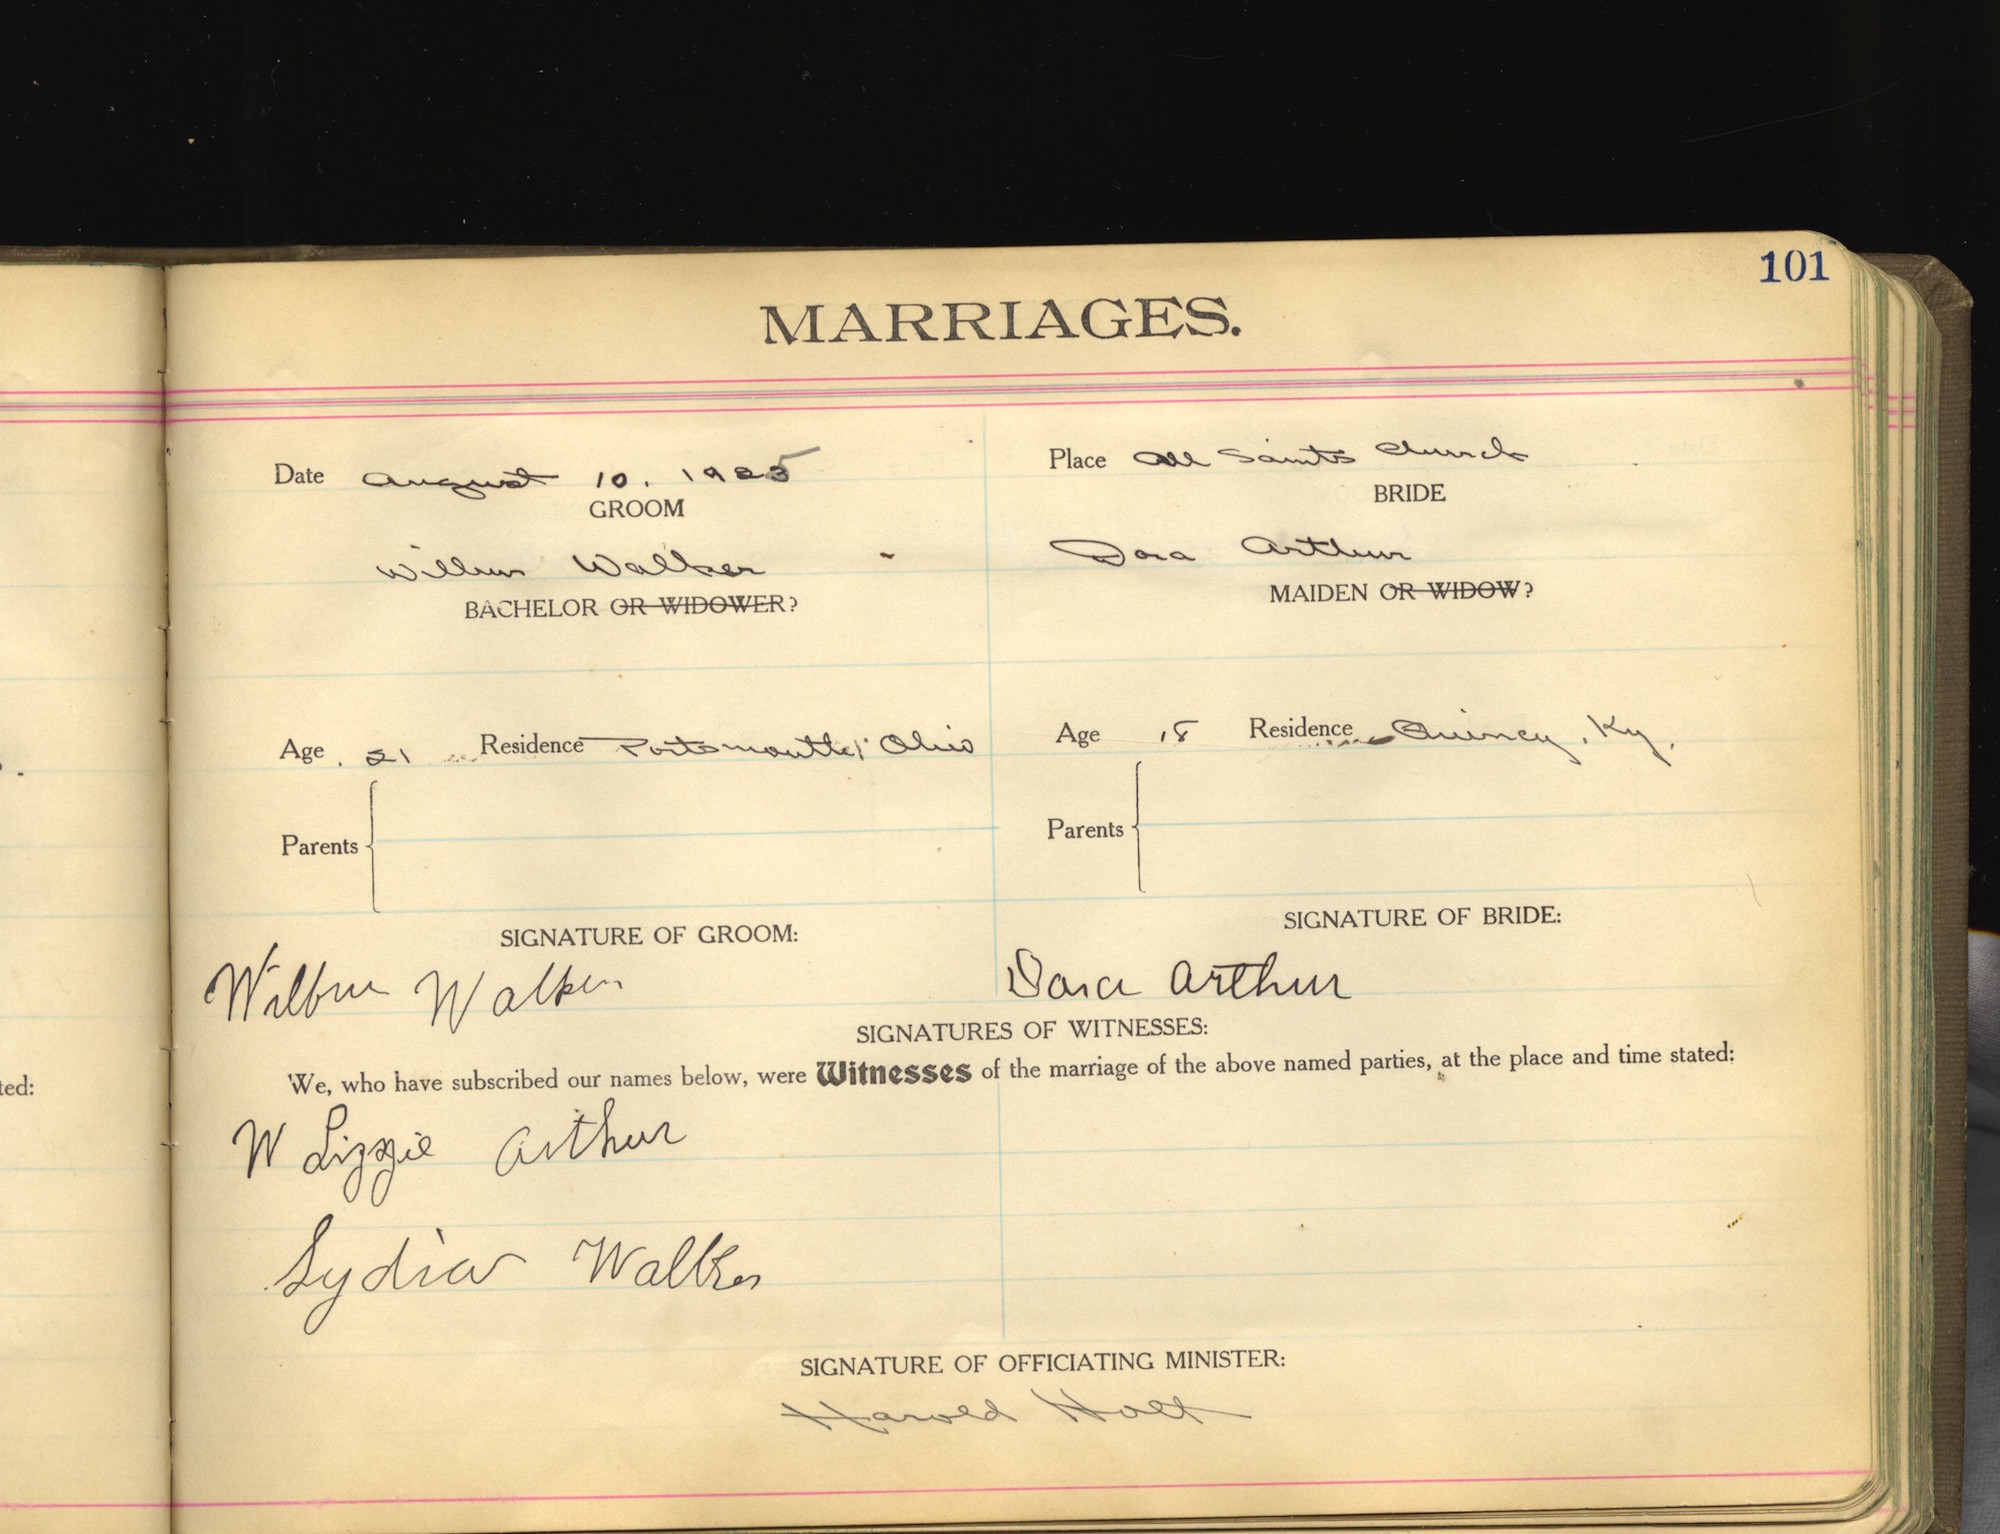 101
MARRIAGES.
Date August 10, 1925 Place All Saints Church
GROOM BRIDE
Wilbur Walker Dora Arthur
BACHELOR OR WIDOWER? MAIDEN OR WIDOW?
Age 21 Residence Portsmouth, Ohio Age 18 Residence Quincy, Ky.
Parents Parents
SIGNATURE OF GROOM: SIGNATURE OF BRIDE:
Wilbur Walker Dora Arthur
SIGNATURES OF WITNESSES:
We, who have subscribed our names below, were Witnesses of the marriage of the above named parties, at the place and time stated:
ted:
W Lizzie Arthur
Lydia Walker
SIGNATURE OF OFFICIATING MINISTER:
Harold Holt